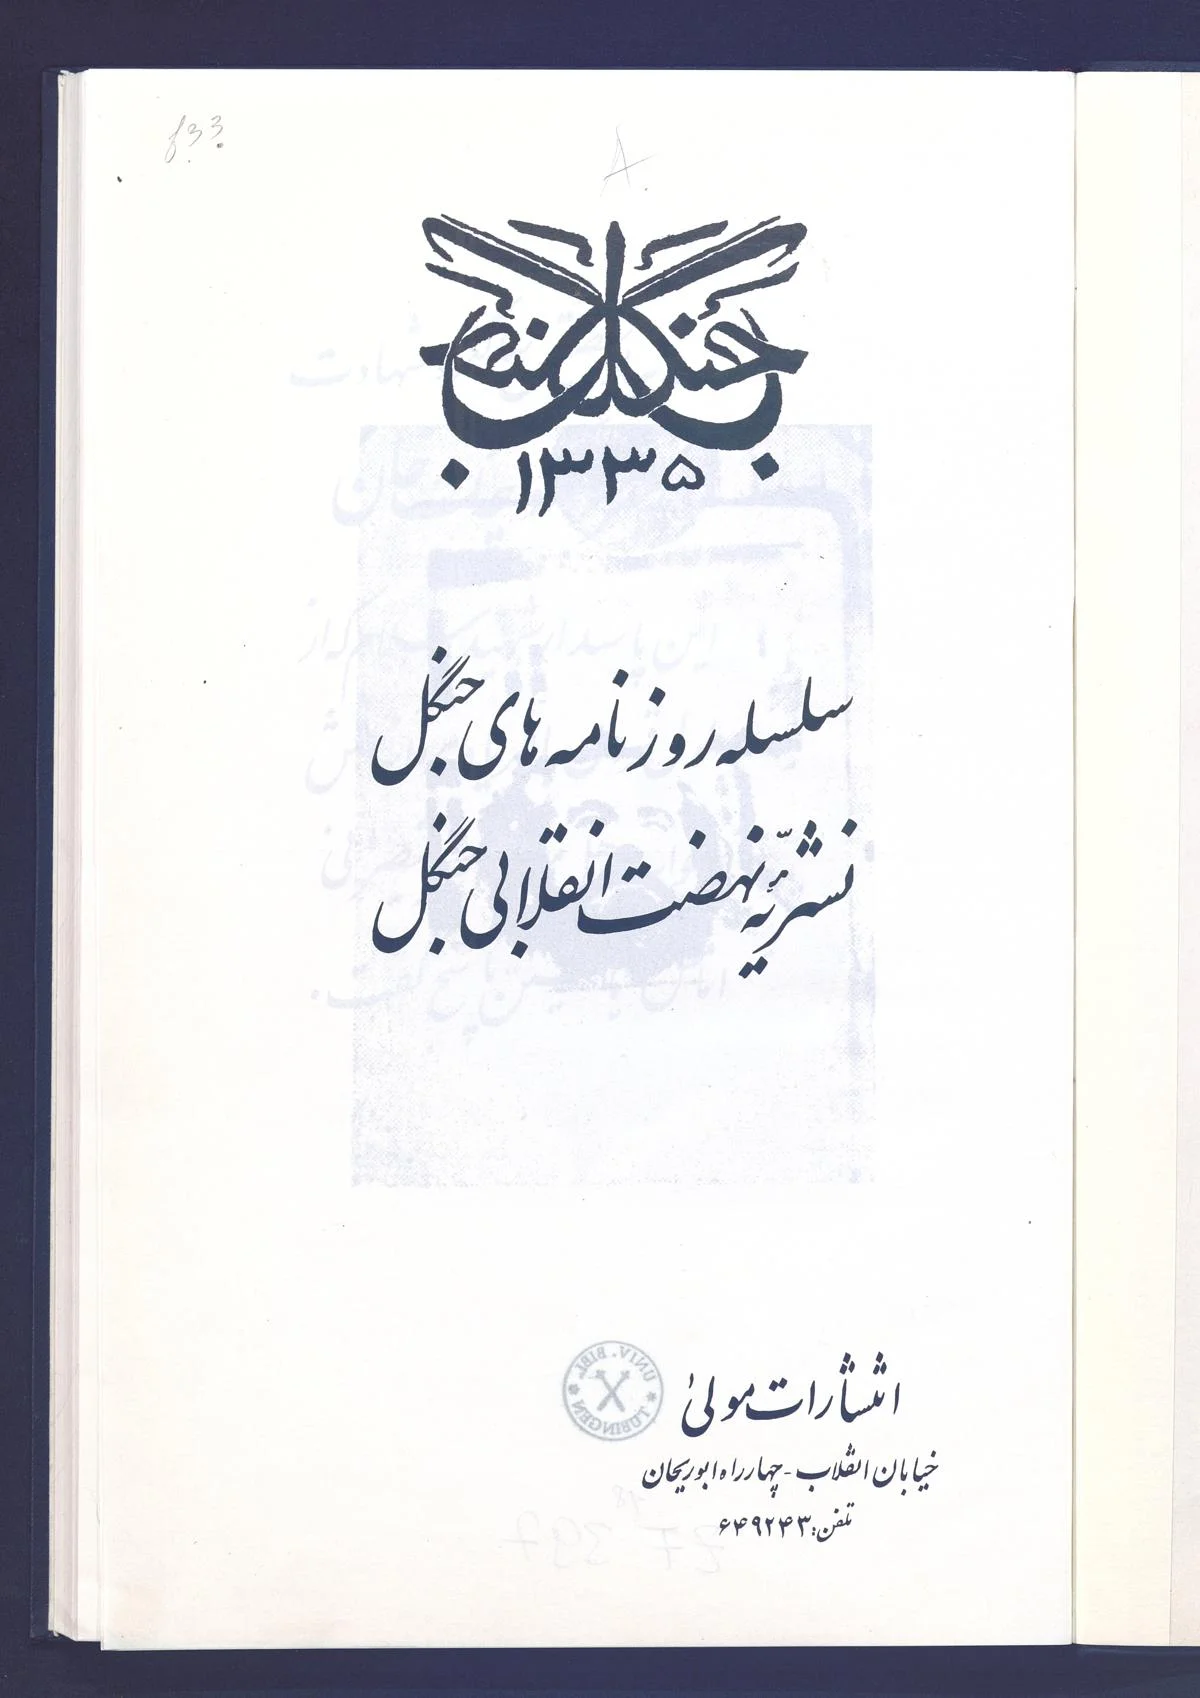 جنگل
۱۳۳۵
سلسله روزنامه های جنگل
نشریّهٔ نهضت انقلابی جنگل
UNIV. BIBL. TÜBINGEN
انتشارات مولیٰ
خیابان انقلاب - چهارراه ابوریحان
تلفن: ۶۴۹۲۴۳